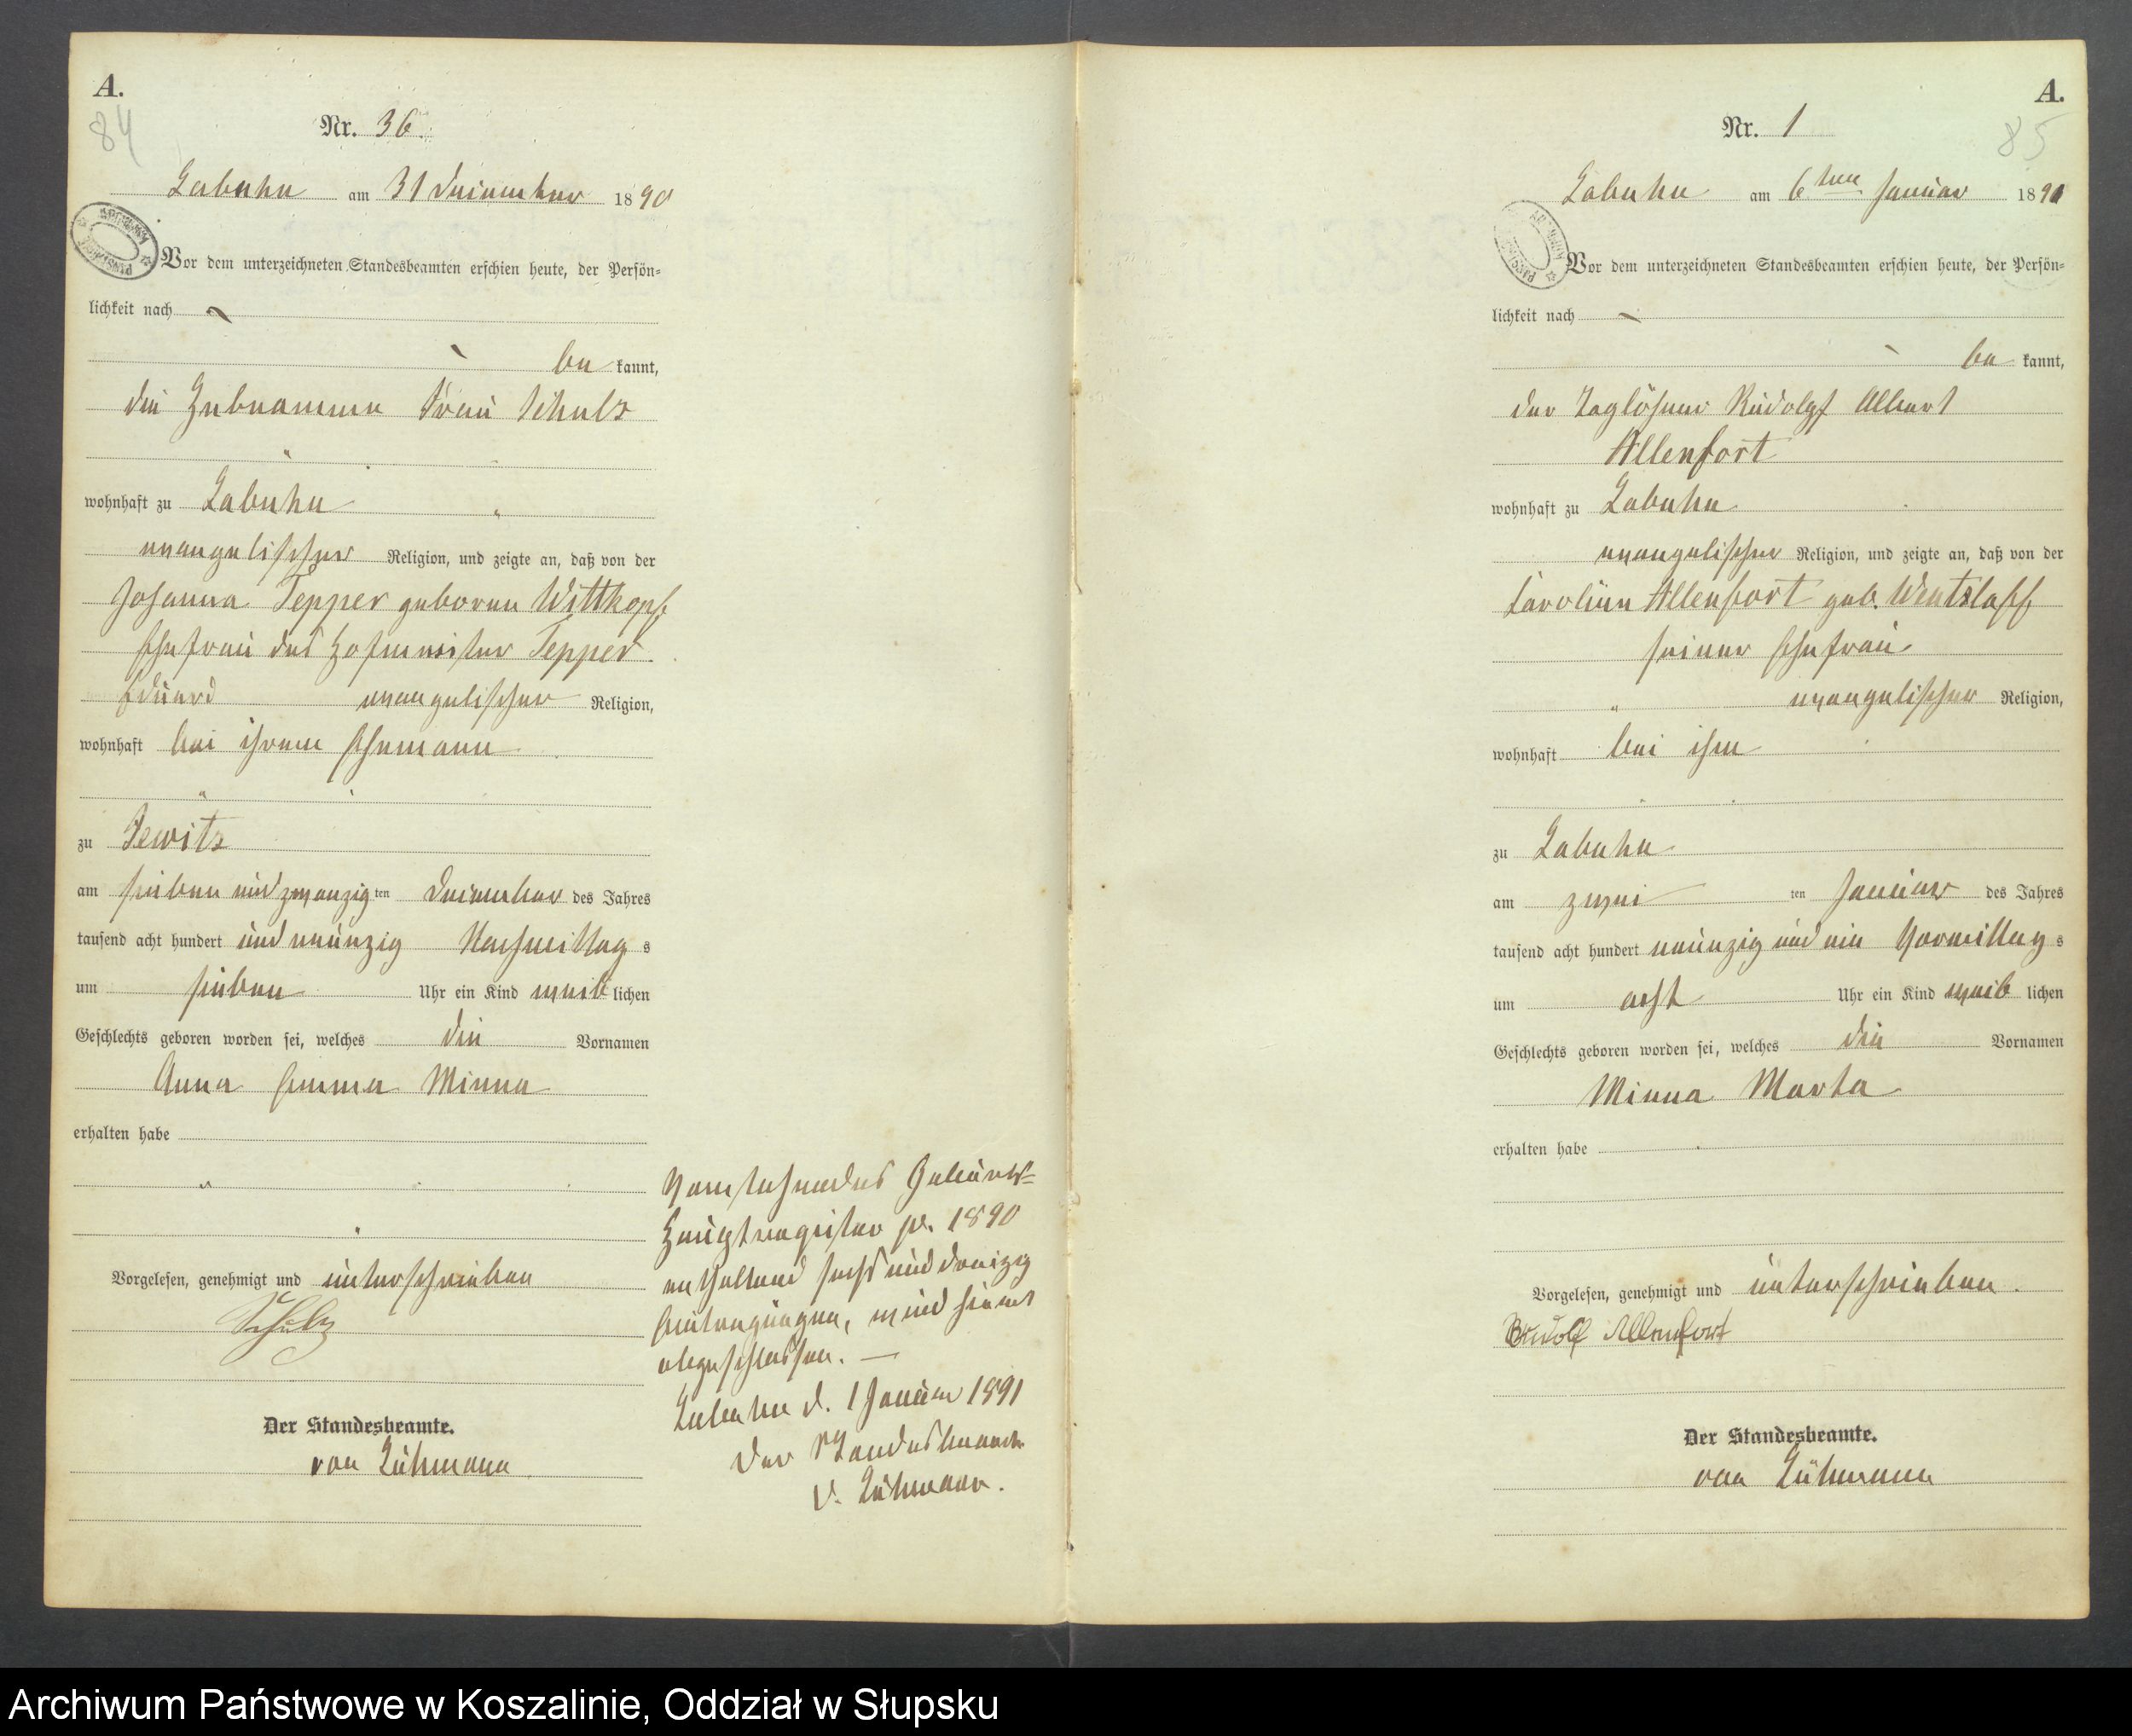 A.
84
Nr. 36.
Labuhn am 31 December 1890
Vor dem unterzeichneten Standesbeamten erschien heute, der Persön=
lichkeit nach
be kannt,
die Hebeamme Frau Schulz
wohnhaft zu Labuhn
evangelischer Religion, und zeigte an, daß von der
Johanna Tepper geboren Wittkopf
Ehefrau des Hofmeister Tepper
Eduard evangelischer Religion,
wohnhaft bei ihrem Ehemann
zu Jewitz
am sieben und zwanzig ten December des Jahres
tausend acht hundert und neunzig Nachmittag s
um sieben Uhr ein Kind weib lichen
Geschlechts geboren worden sei, welches die Vornamen
Anna Emma Minna
erhalten habe
Vorgelesen, genehmigt und unterschrieben
Schulz
Der Standesbeamte.
von Lühmann
Vorstehendes Geburts=
Hauptregister pr. 1890
enthaltend sechs und dreizig
Eintragungen, wird hiermit
abgeschlossen. —
Labuhn d. 1 Januar 1891
Der Standesbeamte
v. Lühmann.
A.
85
Nr. 1
Labuhn am 6ten Januar 1891
Vor dem unterzeichneten Standesbeamten erschien heute, der Persön=
lichkeit nach
be kannt,
der Taglöhner Rudolpf Albert
Allenfort
wohnhaft zu Labuhn
evangelischer Religion, und zeigte an, daß von der
Caroline Allenfort geb. Wentzlaff
seiner Ehefrau
evangelischer Religion,
wohnhaft bei ihm
zu Labuhn
am zwei ten Januar des Jahres
tausend acht hundert neunzig und ein Vormittag s
um acht Uhr ein Kind weib lichen
Geschlechts geboren worden sei, welches die Vornamen
Minna Marta
erhalten habe
Vorgelesen, genehmigt und unterschrieben.
Rudolf Allenfort
Der Standesbeamte.
von Lühmann
Archiwum Państwowe w Koszalinie, Oddział w Słupsku